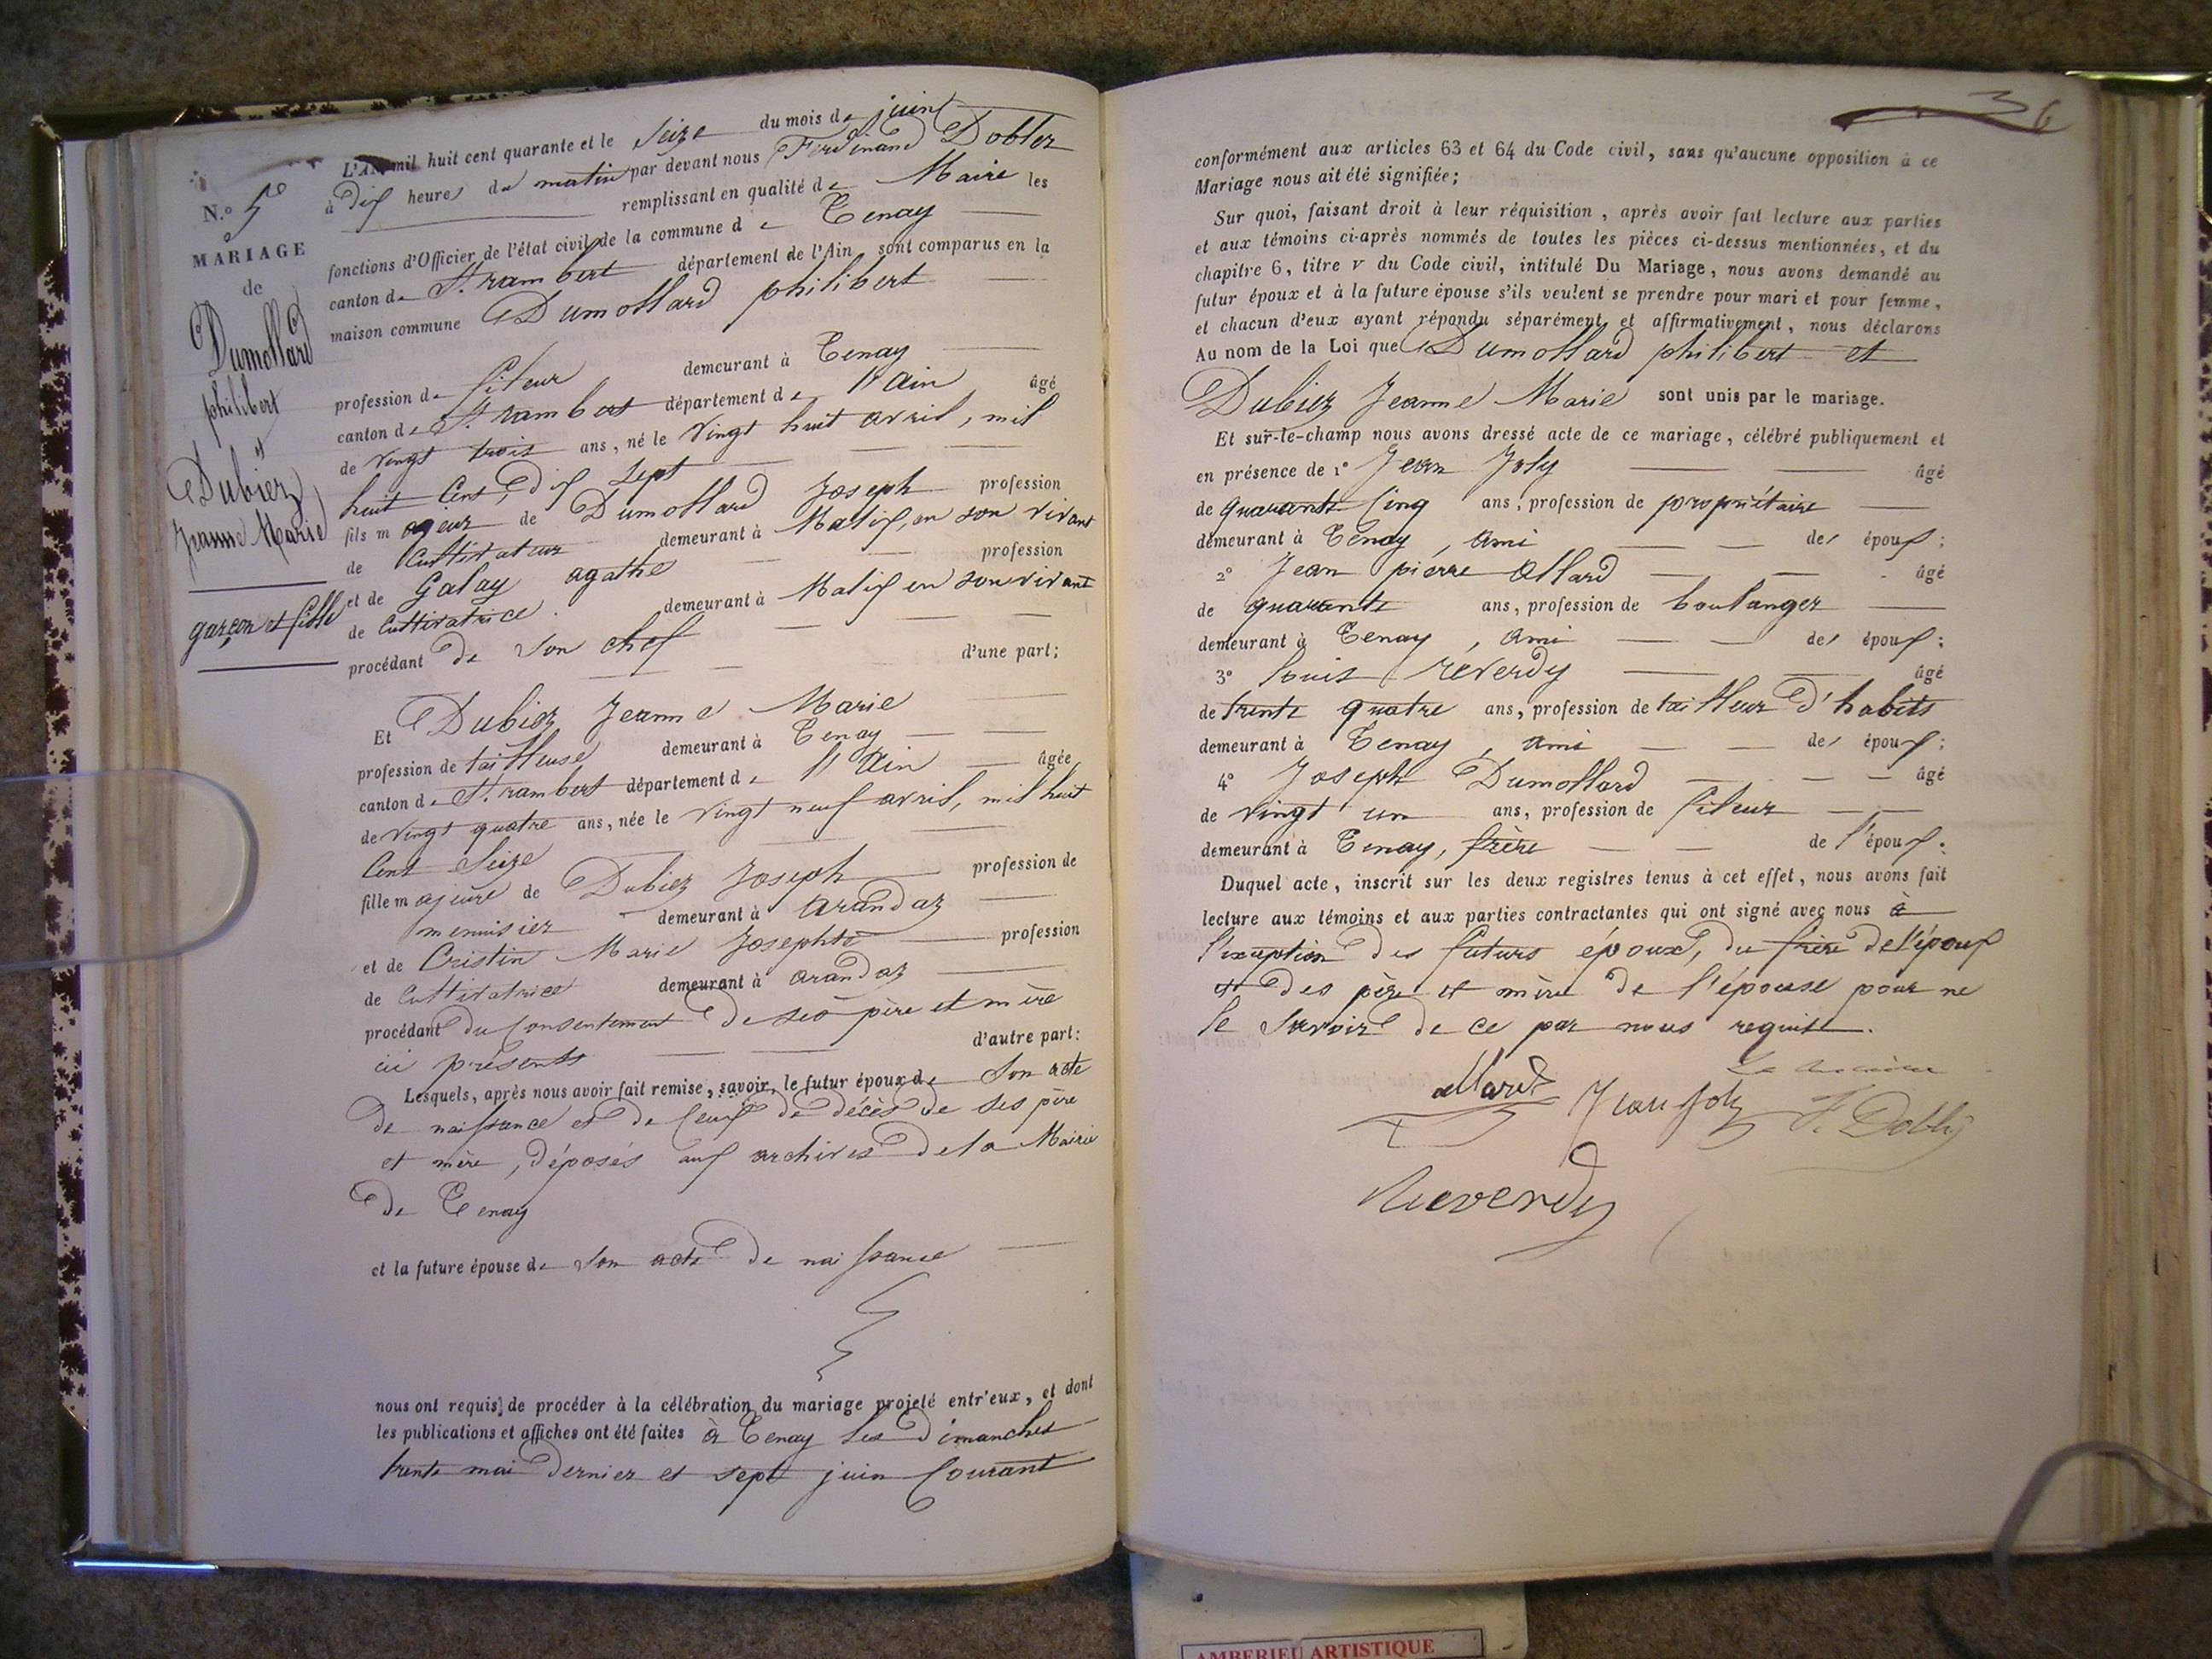 N.° 5e
MARIAGE
de
Dumollard
philibert
et
Dubiez
Jeanne Marie
garçon et fille
L'AN mil huit cent quarante et le Seize du mois de juin
à dix heures du matin par devant nous Ferdinand Dobler
remplissant en qualité de Maire les
fonctions d'Officier de l'état civil de la commune de Tenay
canton de St. rambert département de l'Ain, sont comparus en la
maison commune Dumollard philibert
profession de fileur demeurant à Tenay
canton de St. rambert département de l'ain âgé
de vingt trois ans, né le vingt huit avril, mil
huit Cent, dix sept
fils majeur de Dumollard Joseph profession
de Cultivateur demeurant à Malix, en son vivant
et de Galay agathe profession
de Cultivatrice demeurant à Malix en son vivant
procédant de son chef d'une part;
Et Dubiez Jeanne Marie
profession de tailleuse demeurant à Tenay
canton de St. rambert département de l'ain âgée
de vingt quatre ans, née le vingt neuf avril, mil huit
Cent Seize
fille majeure de Dubiez Joseph profession de
menuisier demeurant à arandaz
et de Cristin Marie Josephte profession
de Cultivatrice demeurant à arandaz
procédant du Consentement de ses père et mère
ici présents d'autre part:
Lesquels, après nous avoir fait remise, savoir, le futur époux de Son acte
de naissance et de Ceux de décès de ses père
et mère, déposés aux archives de la Mairie
de Tenay
et la future épouse de son acte de naissance
nous ont requis de procéder à la célébration du mariage projeté entr'eux, et dont
les publications et affiches ont été faites à Tenay les dimanches
trente mai dernier et sept juin Courant
36
conformément aux articles 63 et 64 du Code civil, sans qu'aucune opposition à ce
Mariage nous ait été signifiée;
Sur quoi, faisant droit à leur réquisition, après avoir fait lecture aux parties
et aux témoins ci-après nommés de toutes les pièces ci-dessus mentionnées, et du
chapitre 6, titre V du Code civil, intitulé Du Mariage, nous avons demandé au
futur époux et à la future épouse s'ils veulent se prendre pour mari et pour femme,
et chacun d'eux ayant répondu séparément et affirmativement, nous déclarons
Au nom de la Loi que Dumollard philibert et
Dubiez Jeanne Marie sont unis par le mariage.
Et sur-le-champ nous avons dressé acte de ce mariage, célébré publiquement et
en présence de 1° Jean Joly âgé
de quarante Cinq ans, profession de propriétaire
demeurant à Tenay, ami des époux;
2° Jean pierre Allard âgé
de quarante ans, profession de boulanger
demeurant à Tenay, ami des époux;
3° Louis réverdy âgé
de trente quatre ans, profession de tailleur d'habits
demeurant à Tenay, ami des époux;
4° Joseph Dumollard âgé
de vingt un ans, profession de fileur
demeurant à Tenay, frère de l'époux.
Duquel acte, inscrit sur les deux registres tenus à cet effet, nous avons fait
lecture aux témoins et aux parties contractantes qui ont signé avec nous à
l'exception des futurs époux, du frère de l'époux
et des père et mère de l'épouse pour ne
le savoir de ce par nous requis.
allard Jean Joly
F. Dobler
Reverdy
AMBERIEU ARTISTIQUE